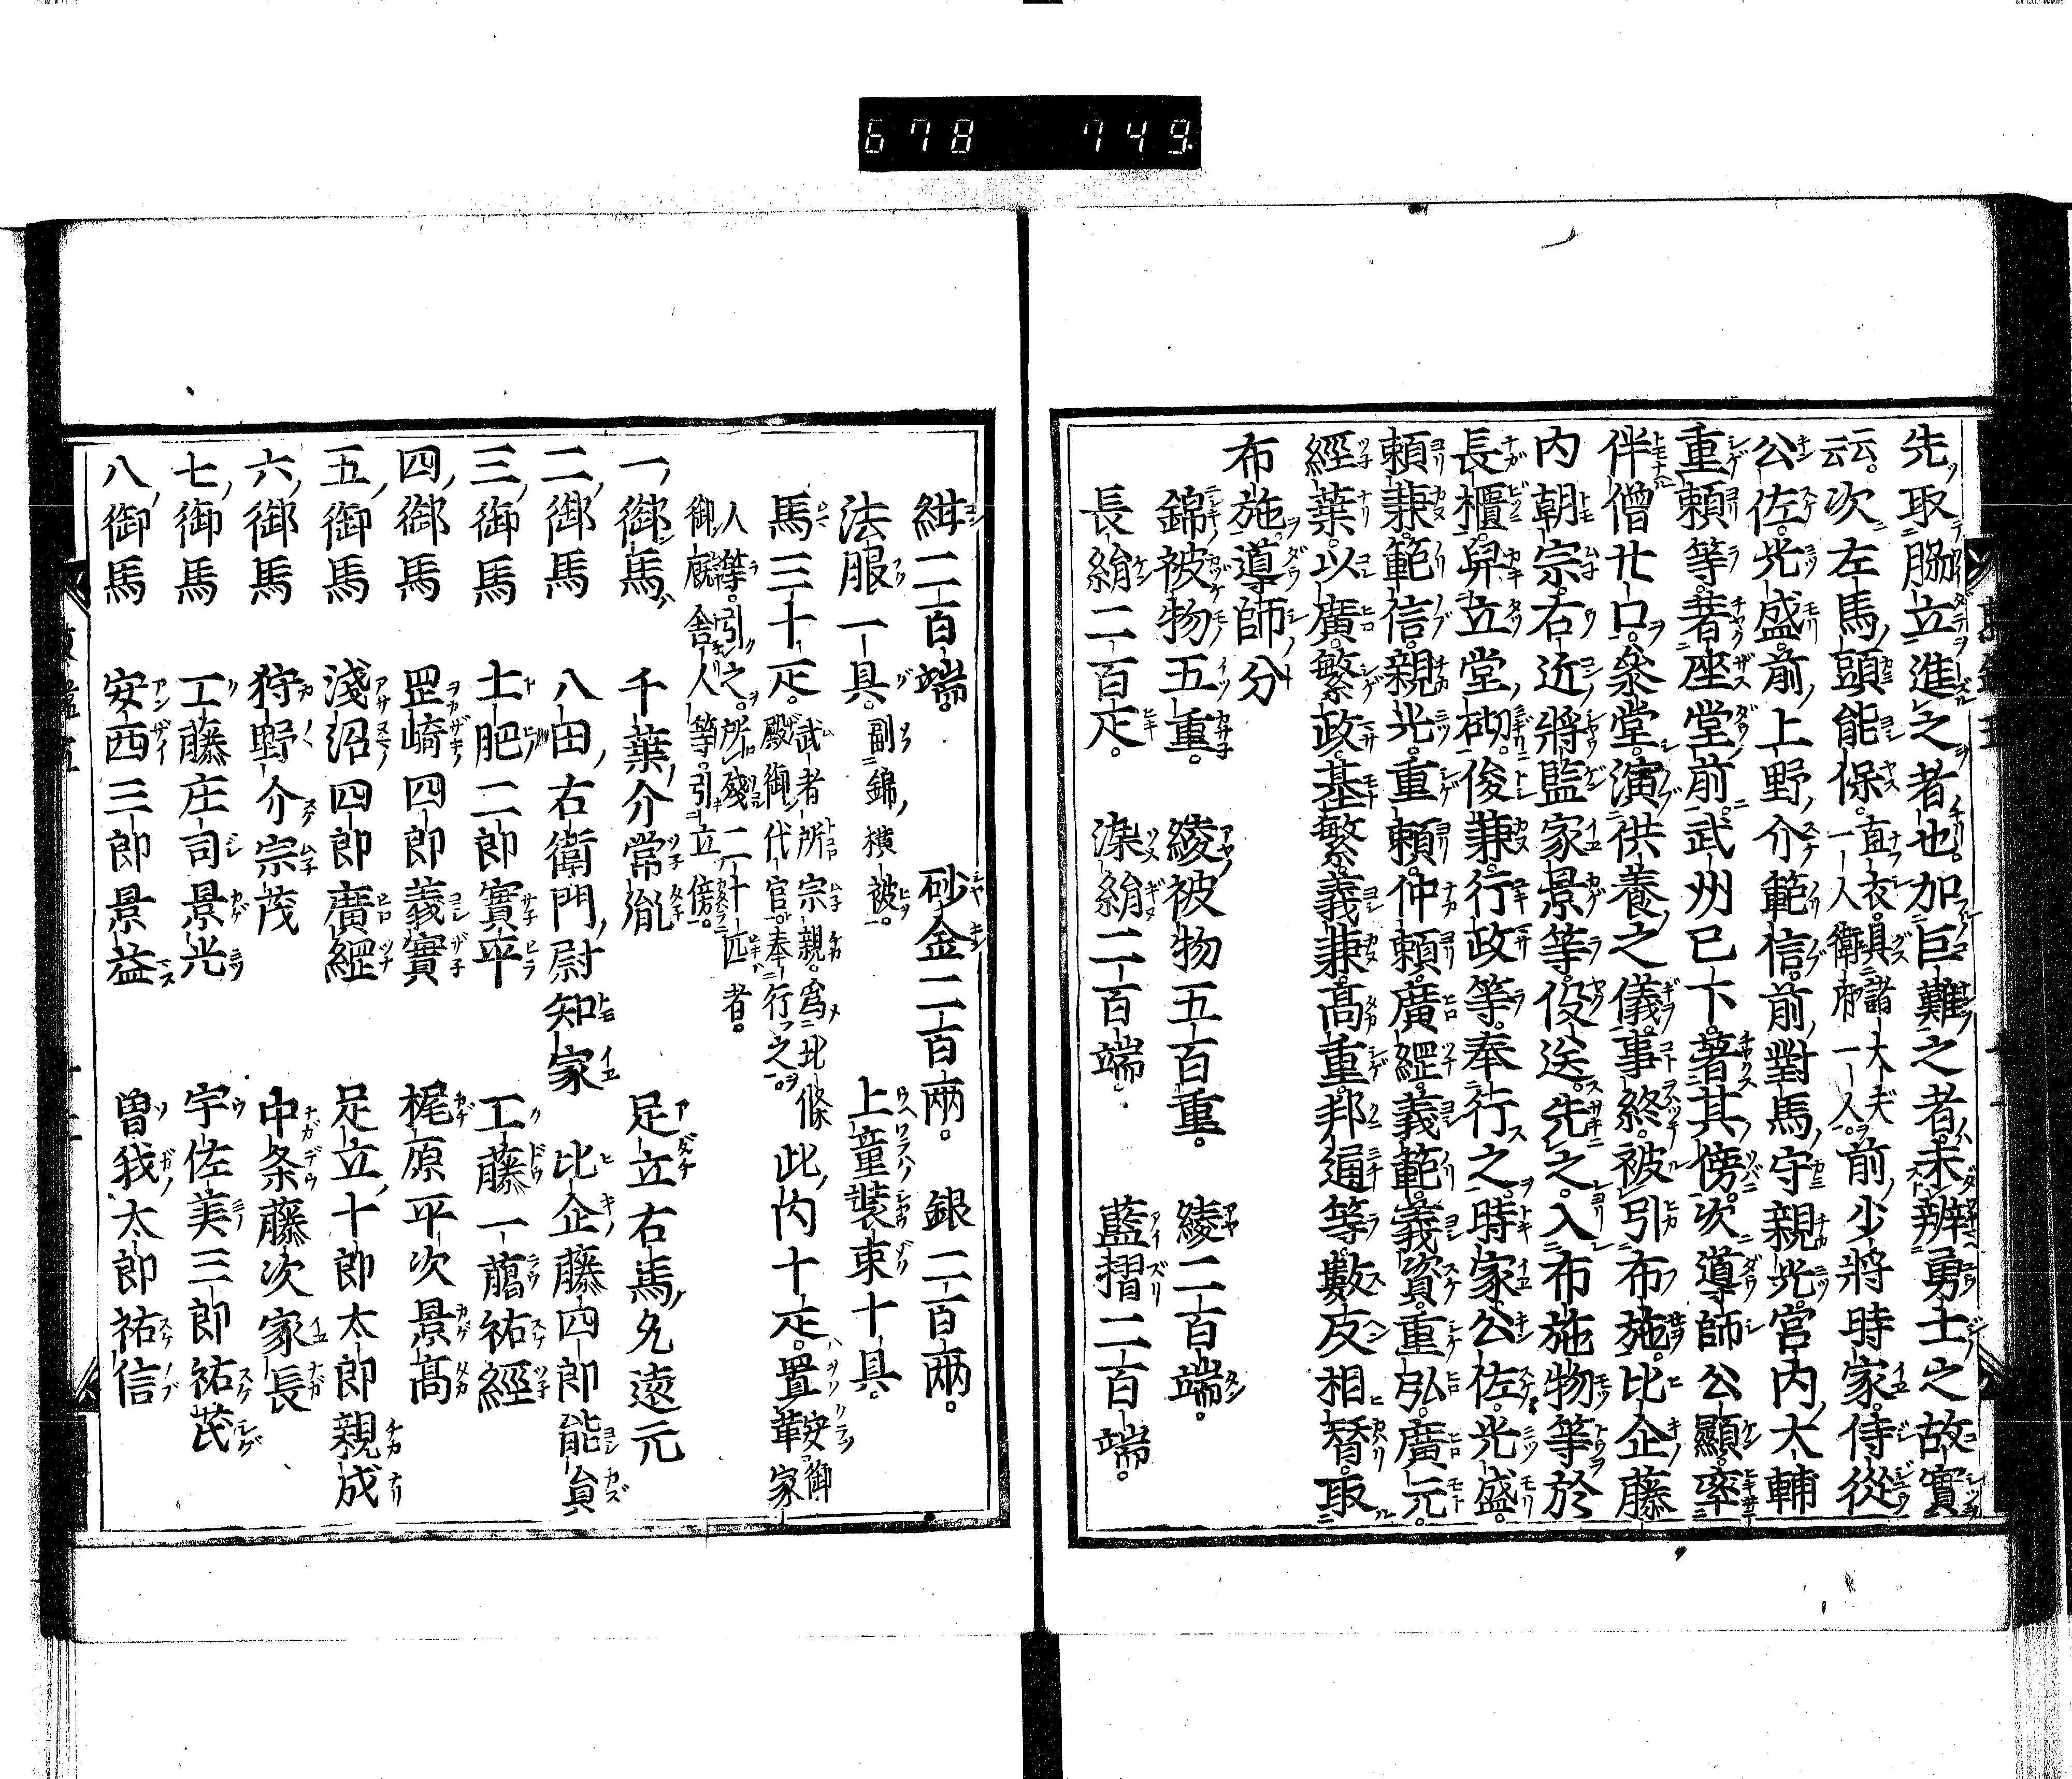 678 749
先取脇立進之者也。加巨難之者。未辨勇士之故實
云云。次左馬頭能保。直衣。具諸大夫一人衛府一人。前少將時家。侍從
公佐。光盛。前上野介範信。前對馬守親光。宮内大輔
重頼等。著座堂前。武州已下。著其傍。次導師公顯。率
伴僧廿口。參堂。演供養之儀。事終。被引布施。比企藤
内朝宗。右近將監家景等。役送。先之。入布施物等於
長櫃。舁立堂砌。俊兼。行政等。奉行之。時家。公佐。光盛。
頼兼。範信。親光。重頼。仲頼。廣經。義範。義資。重弘。廣元。
經葉。以廣。繁政。基繁。義兼。高重。邦通等。數反相替。取
布施。導師分
錦被物五重。 綾被物五百重。 綾二百端。
長絹二百疋。 染絹二百端。 藍摺二百端。
紺二百端。 砂金二百兩。 銀二百兩。
法服一具。副錦横被。 上童裝束十具。
馬三十疋。武者所宗親。爲北條殿御代官。奉行之。 此内十疋。置鞍御家
人等。引之。所殘二十匹者。御廐舎人等。引立傍。
一御馬 千葉介常胤 足立右馬允遠元
二御馬 八田右衛門尉知家 比企藤四郎能員
三御馬 土肥二郎實平 工藤一﨟祐經
四御馬 岡崎四郎義實 梶原平次景高
五御馬 淺沼四郎廣綱 足立十郎太郎親成
六御馬 狩野介宗茂 中条藤次家長
七御馬 工藤庄司景光 宇佐美三郎祐茂
八御馬 安西三郎景益 曽我太郎祐信